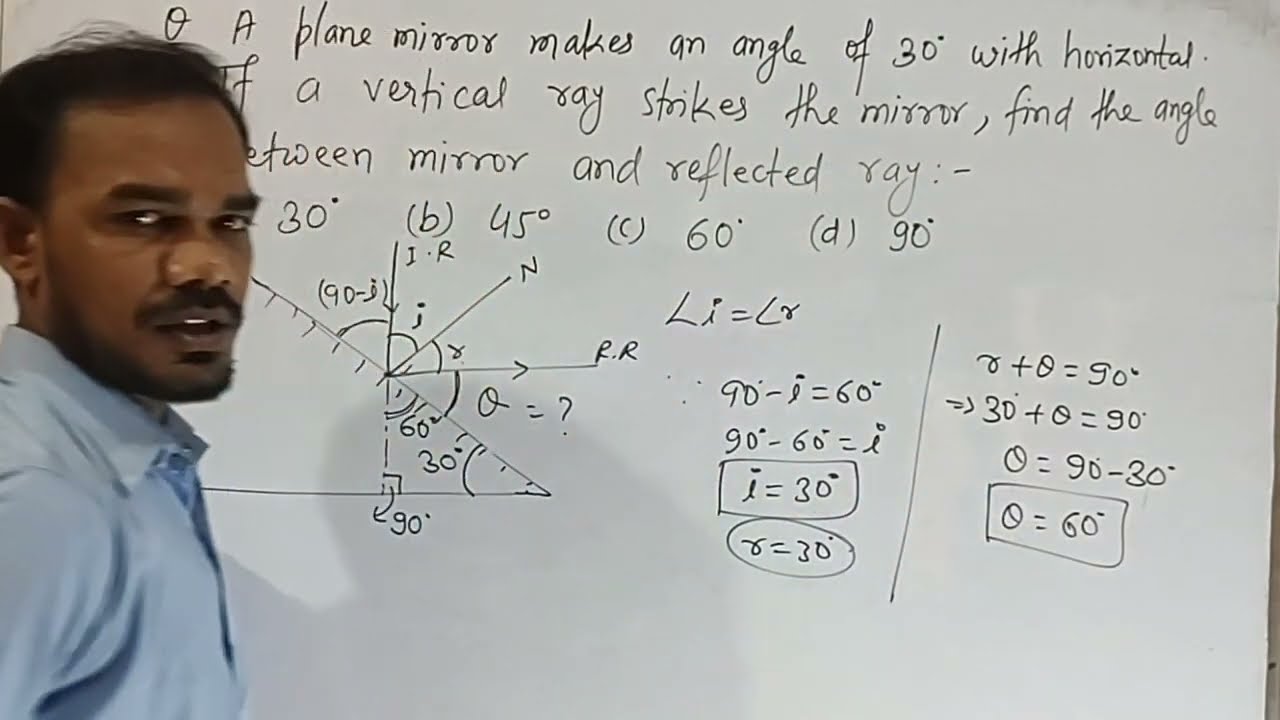 Q A plane mirror makes an angle of 30° with horizontal.
If a vertical ray strikes the mirror, find the angle
etween mirror and reflected ray:-
30° (b) 45° (c) 60° (d) 90°
I.R
N
(90-i)
i
r
R.R
θ = ?
60°
30°
90°
∠i = ∠r
∵ 90°-i = 60°
90°-60° = i
i = 30°
r = 30°
r + θ = 90°
⇒ 30° + θ = 90°
θ = 90-30°
θ = 60°